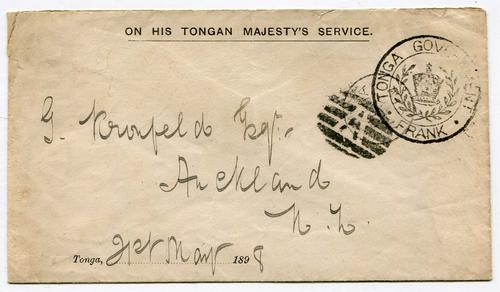 ON HIS TONGAN MAJESTY'S SERVICE.
TONGA GOV
FRANK
G. Kronfeld Esq.,
Auckland
N. Z.
Tonga, 21st May 1898